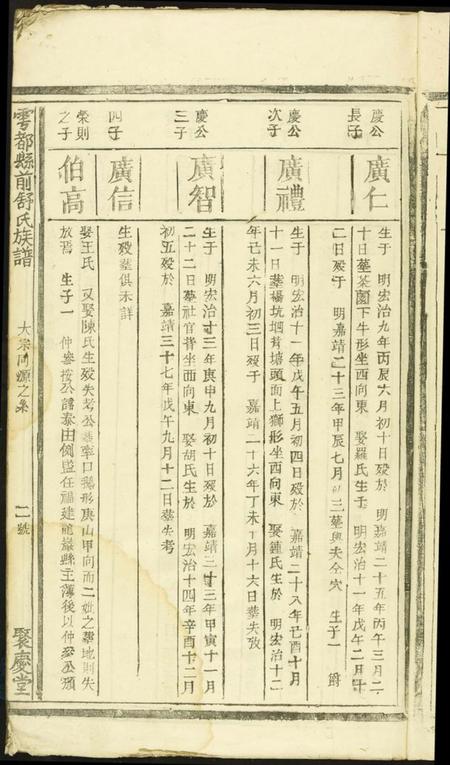 慶公長子
廣仁
生于　明宏治九年丙辰六月初十日殁於　明嘉靖二十五年丙午三月二
十日葬茶園下牛形坐西向東　娶羅氏生于　明宏治十一年戊午二月十
二日殁于　明嘉靖二十三年甲辰七月　三葬與夫仝穴　生子一　爵
慶公次子
廣禮
生于　明宏治十一年戊午五月初四日殁於　嘉靖二十八年己酉十月
十一日葬楊坑堌背塘頭面上獅形坐西向東　娶鍾氏生於　明宏治十二
年己未六月初三日殁于　嘉靖二十六年丁未十月十六日葬失攷
慶公三子
廣智
生于　明宏治十三年庚申九月初十日殁於　嘉靖三十三年甲寅十一月
二十二日葬社官背坐西向東　娶胡氏生於　明宏治十四年辛酉十二月
初五殁於　嘉靖三十七年戊午九月十二日葬失考
四子
廣信
生殁葬俱未詳
榮則之子
伯高
娶王氏　又娶陳氏生殁失考公葬寧口鵝形庚山甲向而二妣之葬地則失
放焉　生子一　仲參按公譜泰由例監任福建龍巖縣主簿後以仲參公頒
雩都縣前舒氏族譜
大宗同源之系
二號
聚慶堂